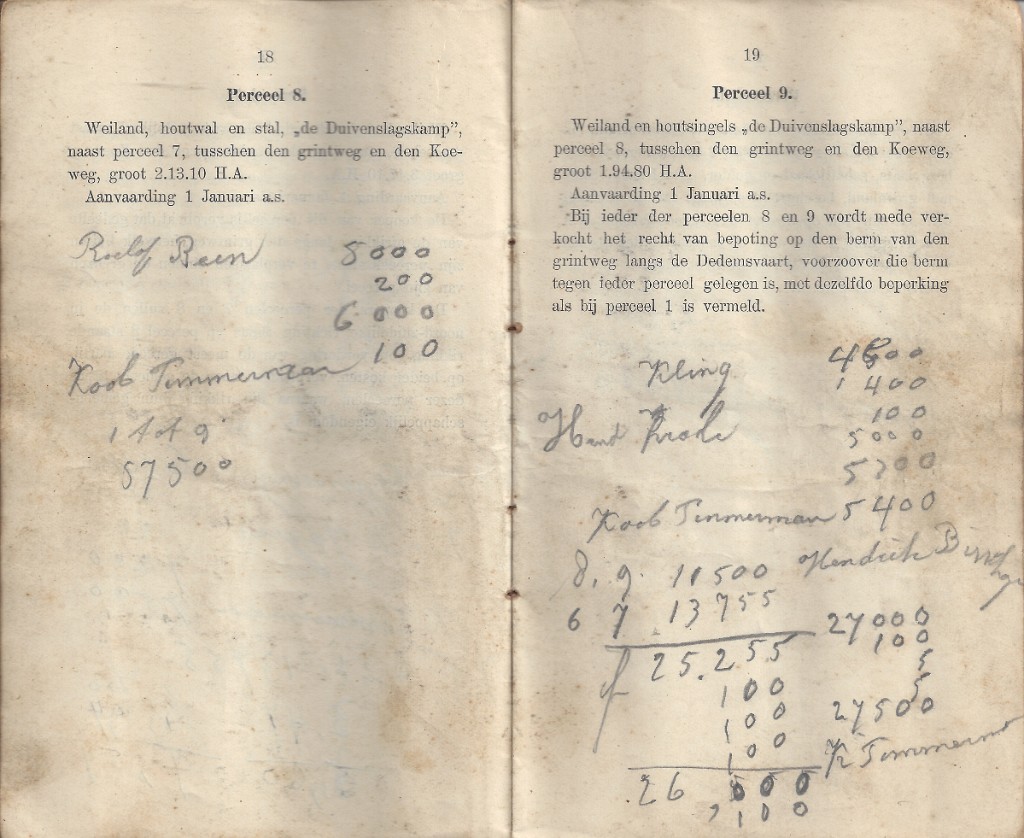 18
Perceel 8.
Weiland, houtwal en stal, „de Duivenslagskamp”,
naast perceel 7, tusschen den grintweg en den Koe-
weg, groot 2.13.10 H.A.
Aanvaarding 1 Januari a.s.
Roelof Been 5000
200
6000
100
Koob Timmerman
1 tot 9
57500
19
Perceel 9.
Weiland en houtsingels „de Duivenslagskamp”, naast
perceel 8, tusschen den grintweg en den Koeweg,
groot 1.94.80 H.A.
Aanvaarding 1 Januari a.s.
Bij ieder der perceelen 8 en 9 wordt mede ver-
kocht het recht van bepoting op den berm van den
grintweg langs de Dedemsvaart, voorzoover die berm
tegen ieder perceel gelegen is, met dezelfde beperking
als bij perceel 1 is vermeld.
Kling
1 400
100
5000
Koob Timmerman 5400
8. 9. 11500 Hendrik
6 7 13755
27000
100
f 25.255
5
5
100
100
27500
100
K Timmerman
26